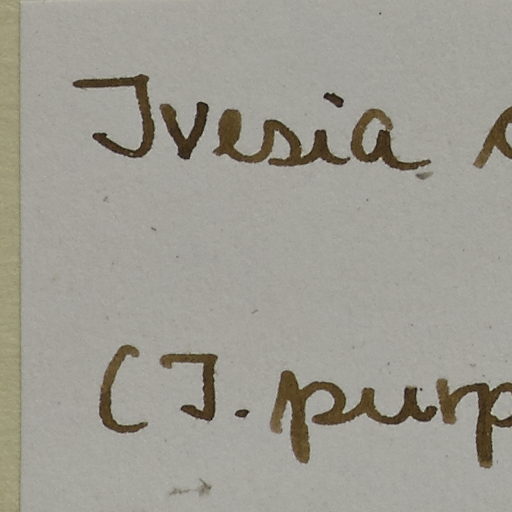 Ivesia
(I. purp